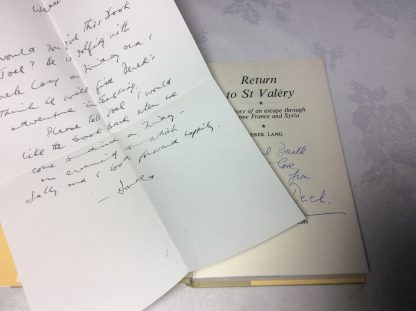 would you give this book
Joel? He is golfing with
Derek Lang on Friday and I
think he will find Derek's
adventure interesting.
Please tell Joel I would
like the book back when we
come to dinner on Friday —
an evening to which
Sally and I look forward happily.
Return
to St Valéry
story of an escape through
time France and Syria
DEREK LANG
love
from
Derek